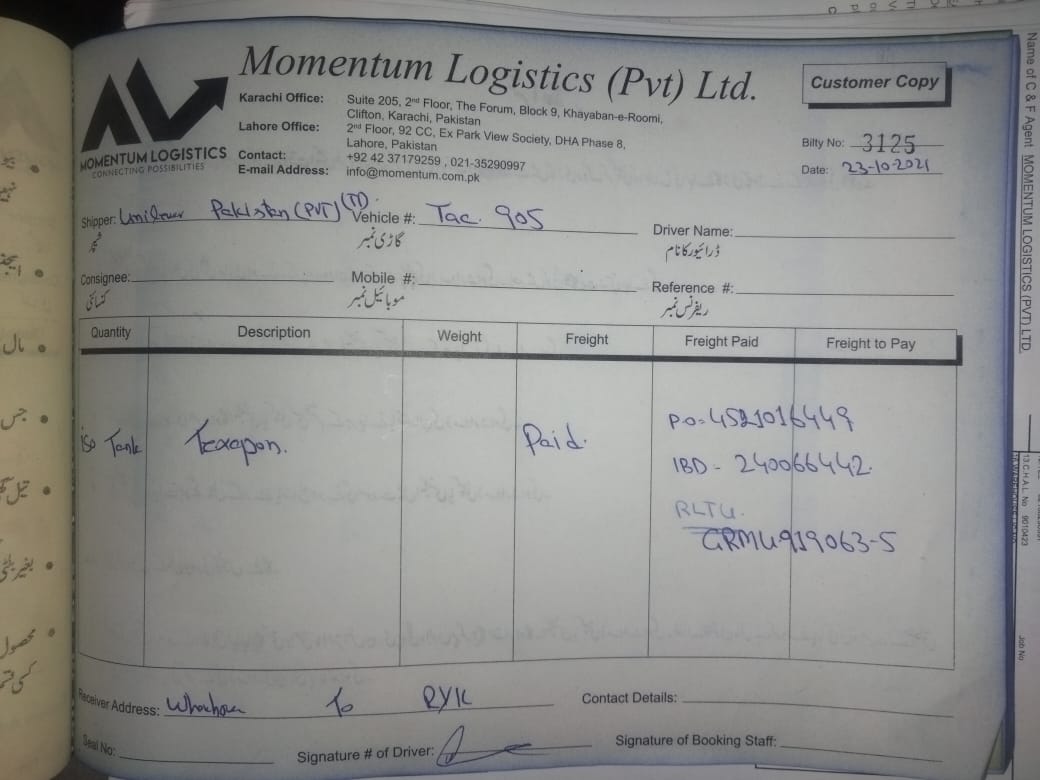 Momentum Logistics (Pvt) Ltd.
Customer Copy
MOMENTUM LOGISTICS
CONNECTING POSSIBILITIES
Karachi Office: Suite 205, 2nd Floor, The Forum, Block 9, Khayaban-e-Roomi,
Clifton, Karachi, Pakistan
Lahore Office: 2nd Floor, 92 CC, Ex Park View Society, DHA Phase 8,
Lahore, Pakistan
Contact: +92 42 37179259 , 021-35290997
E-mail Address: info@momentum.com.pk
Bilty No: 3125
Date: 23-10-2021
Shipper: Unilever Pakistan (PVT) LTD. Vehicle #: Tac. 905 Driver Name:
گاڑی نمبر ڈرائیور کا نام
Consignee: Mobile #: Reference #:
موبائیل نمبر ریفرنس نمبر
Quantity Description Weight Freight Freight Paid Freight to Pay
Iso Tank Texapon. Paid.
P.O= 4521016449
IBD - 240066442.
RLTU.
GRMU919063-5
Receiver Address: To RYK Contact Details:
Seal No: Signature # of Driver: Signature of Booking Staff:
Name of C & F Agent MOMENTUM LOGISTICS (PVT) LTD.
13.C.H.A.L. No 9010423
Job No
مال
جس
محصول